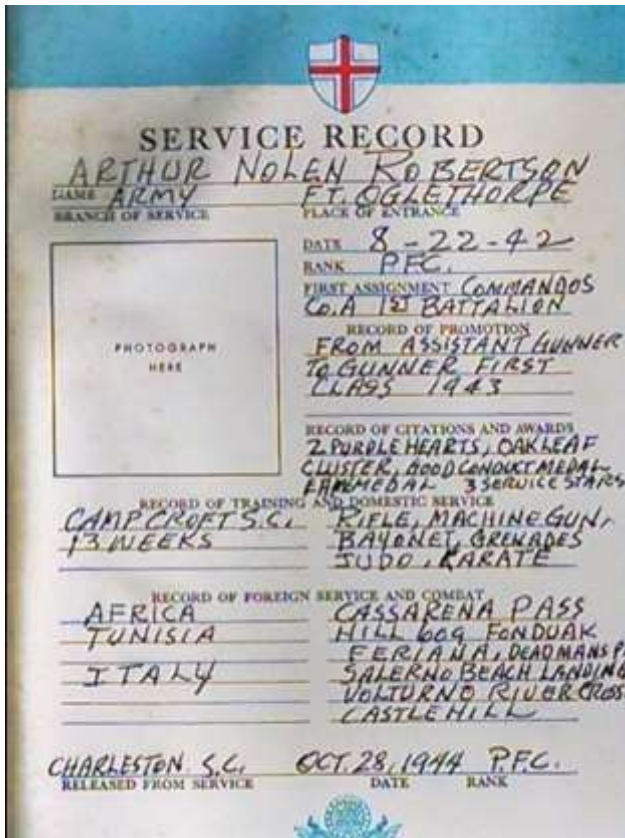 SERVICE RECORD
ARTHUR NOLEN ROBERTSON
NAME ARMY FT. OGLETHORPE
BRANCH OF SERVICE PLACE OF ENTRANCE
DATE 8-22-42
RANK P.F.C.
FIRST ASSIGNMENT COMMANDOS
CO.A 1ST BATTALION
RECORD OF PROMOTION
FROM ASSISTANT GUNNER
TO GUNNER FIRST
CLASS 1943
PHOTOGRAPH
HERE
RECORD OF CITATIONS AND AWARDS
2 PURPLE HEARTS, OAK LEAF
CLUSTER, GOOD CONDUCT MEDAL
MEDAL 3 SERVICE STARS
RECORD OF TRAINING AND DOMESTIC SERVICE
CAMP CROFT S.C. RIFLE, MACHINE GUN,
13 WEEKS BAYONET, GRENADES
JUDO, KARATE
RECORD OF FOREIGN SERVICE AND COMBAT
AFRICA CASSARENA PASS
TUNISIA HILL 609 FONDUAK
FERIANA, DEADMANS P
ITALY SALERNO BEACH LANDING
VOLTURNO RIVER CROSS
CASTLE HILL
CHARLESTON. S.C. OCT. 28, 1944 P.F.C.
RELEASED FROM SERVICE DATE RANK